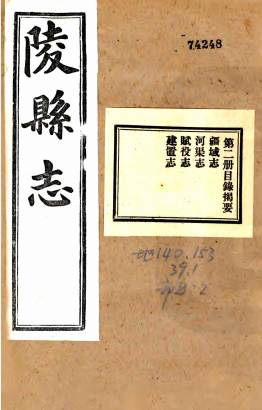 74248
陵縣志
第二册目錄揭要
疆域志
河渠志
賦役志
建置志
地140.153
39.1